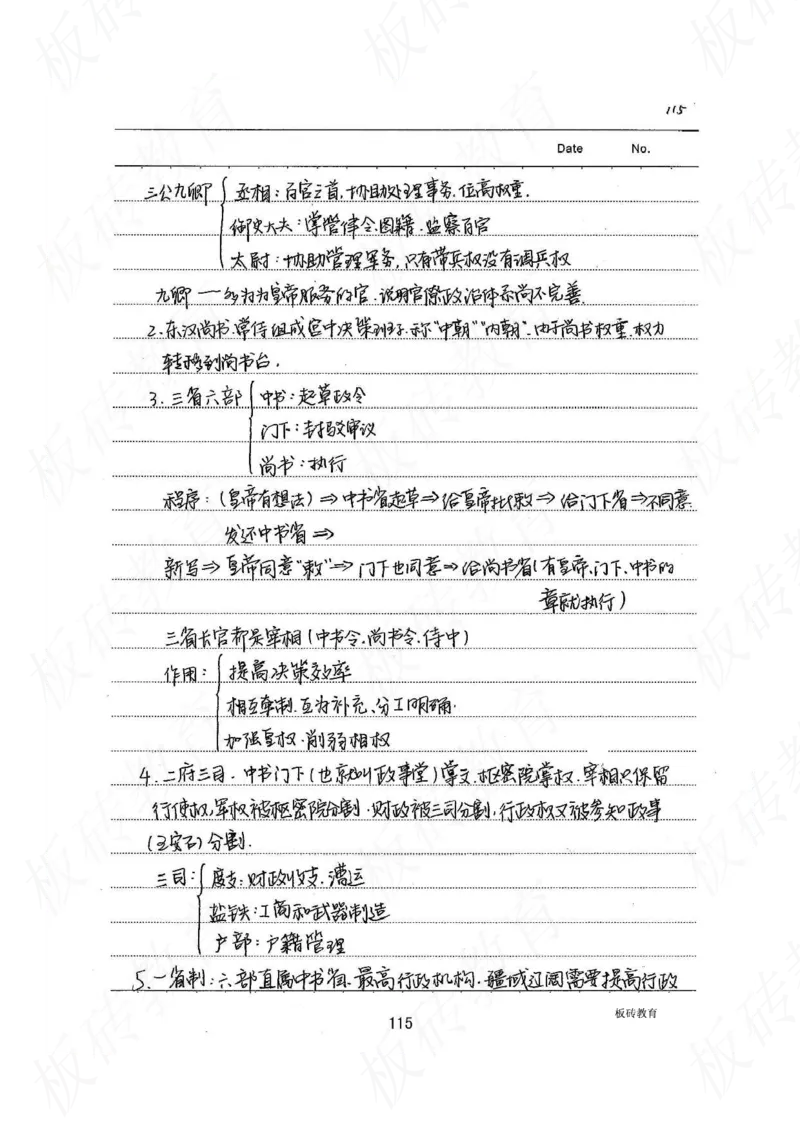 115
Date No.
三公九卿 丞相：百官之首，协助处理事务，位高权重.
御史大夫：掌管律令、图籍、监察百官
太尉：协助管理军务，只有带兵权没有调兵权
九卿——多为为皇帝服务的官，说明官僚政治体系尚不完善
2.东汉尚书、常侍组成宫中决策班子，称"中朝""内朝"，由于尚书权重，权力
转移到尚书台.
3.三省六部 中书：起草政令
门下：封驳审议
尚书：执行
程序：（皇帝有想法）⇒中书省起草⇒给皇帝批敕⇒给门下省⇒不同意
发还中书省⇒
新写⇒皇帝同意"敕"⇒门下也同意⇒给尚书省（有皇帝、门下、中书的
章就执行）
三省长官都是宰相（中书令、尚书令、侍中）
作用：提高决策效率
相互牵制、互为补充、分工明确.
加强皇权，削弱相权
4.二府三司.中书门下（也就叫政事堂）掌文，枢密院掌权，宰相只保留
行使权，军权被枢密院分割，财政被三司分割，行政权又被参知政事
（王安石）分割.
三司：度支：财政收支、漕运
盐铁：工商和武器制造
户部：户籍管理
5.一省制：六部直属中书省，最高行政机构，疆域辽阔需要提高行政
115
板砖教育